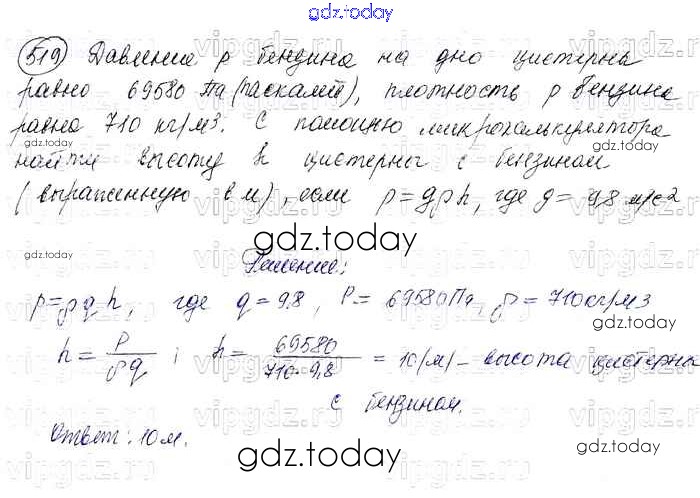 gdz.today
519) Давление р бензина на дно цистерны
равно 69580 Па (паскалей), плотность ρ бензина
равна 710 кг/м3. С помощью микрокалькулятора
найти высоту h цистерны с бензином
(выраженную в м), если p=gρh, где g=9,8 м/с2
gdz.today
gdz.today
Решение:
p=ρgh, где g=9,8, P=69580Па, ρ=710кг/м3
h=P/ρg; h=69580/710·9,8=10(м)-высота цистерны
с бензином.
Ответ: 10м.
gdz.today
gdz.today